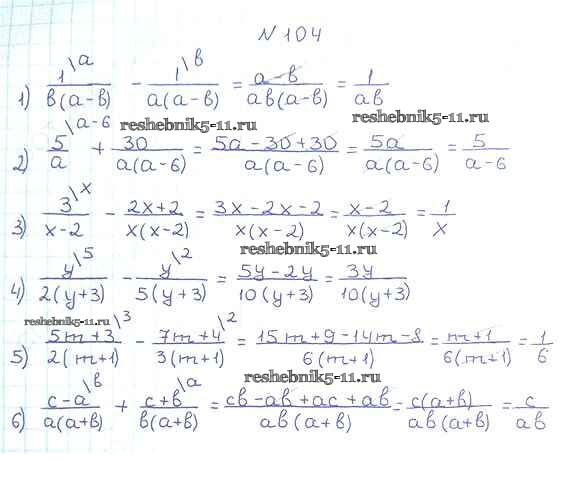 № 104
1) 1\a / в(a-в) - 1\в / a(a-в) = a-в / aв(a-в) = 1 / aв
reshebnik5-11.ru
2) 5\a-6 / a + 30 / a(a-6) = 5a-30+30 / a(a-6) = 5a / a(a-6) = 5 / a-6
3) 3\x / x-2 - 2x+2 / x(x-2) = 3x-2x-2 / x(x-2) = x-2 / x(x-2) = 1 / x
reshebnik5-11.ru
4) y\5 / 2(y+3) - y\2 / 5(y+3) = 5y-2y / 10(y+3) = 3y / 10(y+3)
reshebnik5-11.ru
5) 5m+3\3 / 2(m+1) - 7m+4\2 / 3(m+1) = 15m+9-14m-8 / 6(m+1) = m+1 / 6(m+1) = 1 / 6
reshebnik5-11.ru
6) c-a\в / a(a+в) + c+в\a / в(a+в) = cв-aв+ac+aв / aв(a+в) = c(a+в) / aв(a+в) = c / aв